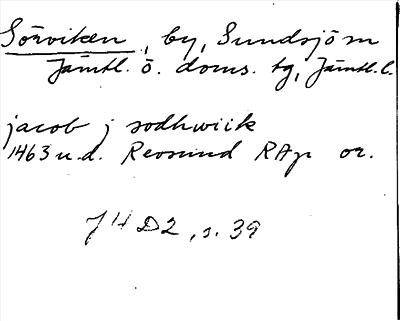 Sörviken, by, Sundsjö sn
Jämtl. ö. doms. tg, Jämtl. l.
jacob j sodhwiik
1463 u.d. Revsund RAp or.
J H D2, s. 39